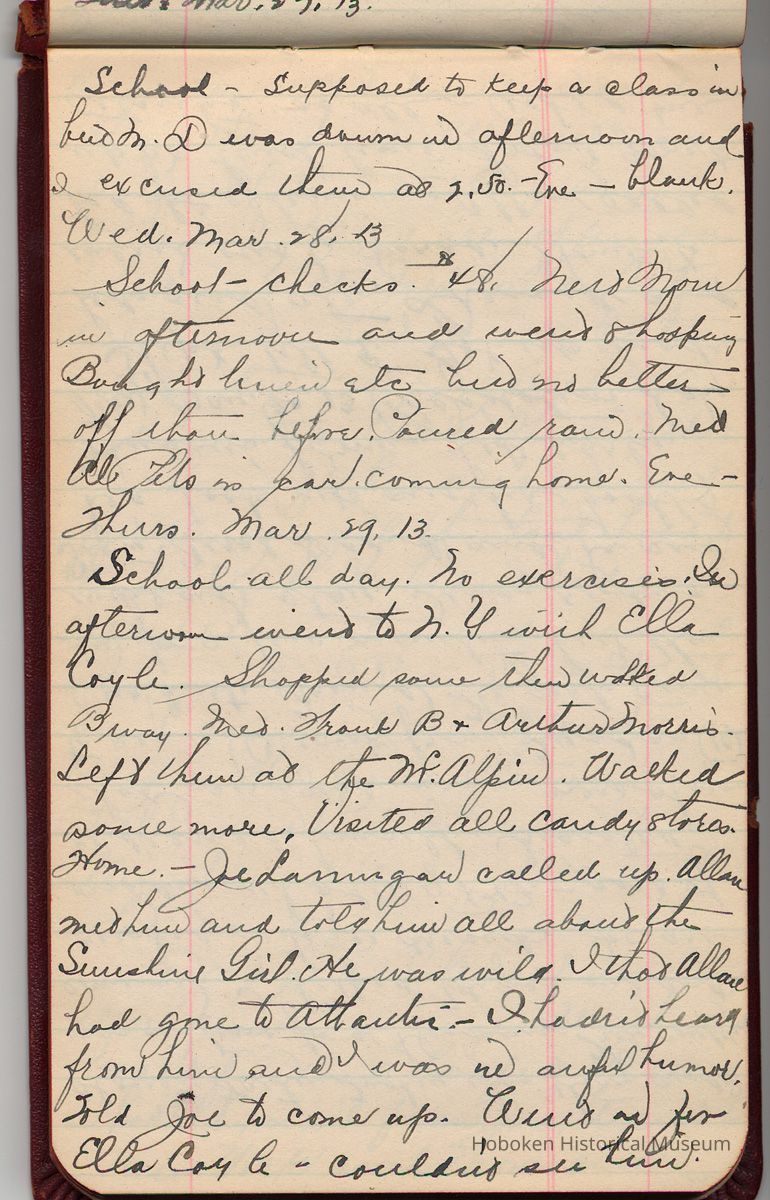 Mar. 27, 13.
School - Supposed to keep a class in
but M. D was down in afternoon and
I excused them at 2.50. - Eve - blank.
Wed. Mar. 28. 13
School - checks. $48. Met Mom
in afternoon and went shopping
Bought linen etc but no better
off than before. Poured rain. Met
in car coming home. Eve -
Thurs. Mar. 29, 13.
School all day. No exercises. In
afternoon went to N. Y with Ella
Coyle. Shopped some then walked
Bway. Met. Frank B & Arthur Morris.
Left them at the McAlpin. Walked
some more, Visited all candy stores.
Home. - Joe Lannigan called up. Allan
met him and told him all about the
Sunshine Girl. He was wild. I thot Allan
had gone to Atlantic - I hadn't heard
from him and I was in awful humor.
Told Joe to come up. Went in for
Ella Coyle - couldn't see him.
Hoboken Historical Museum